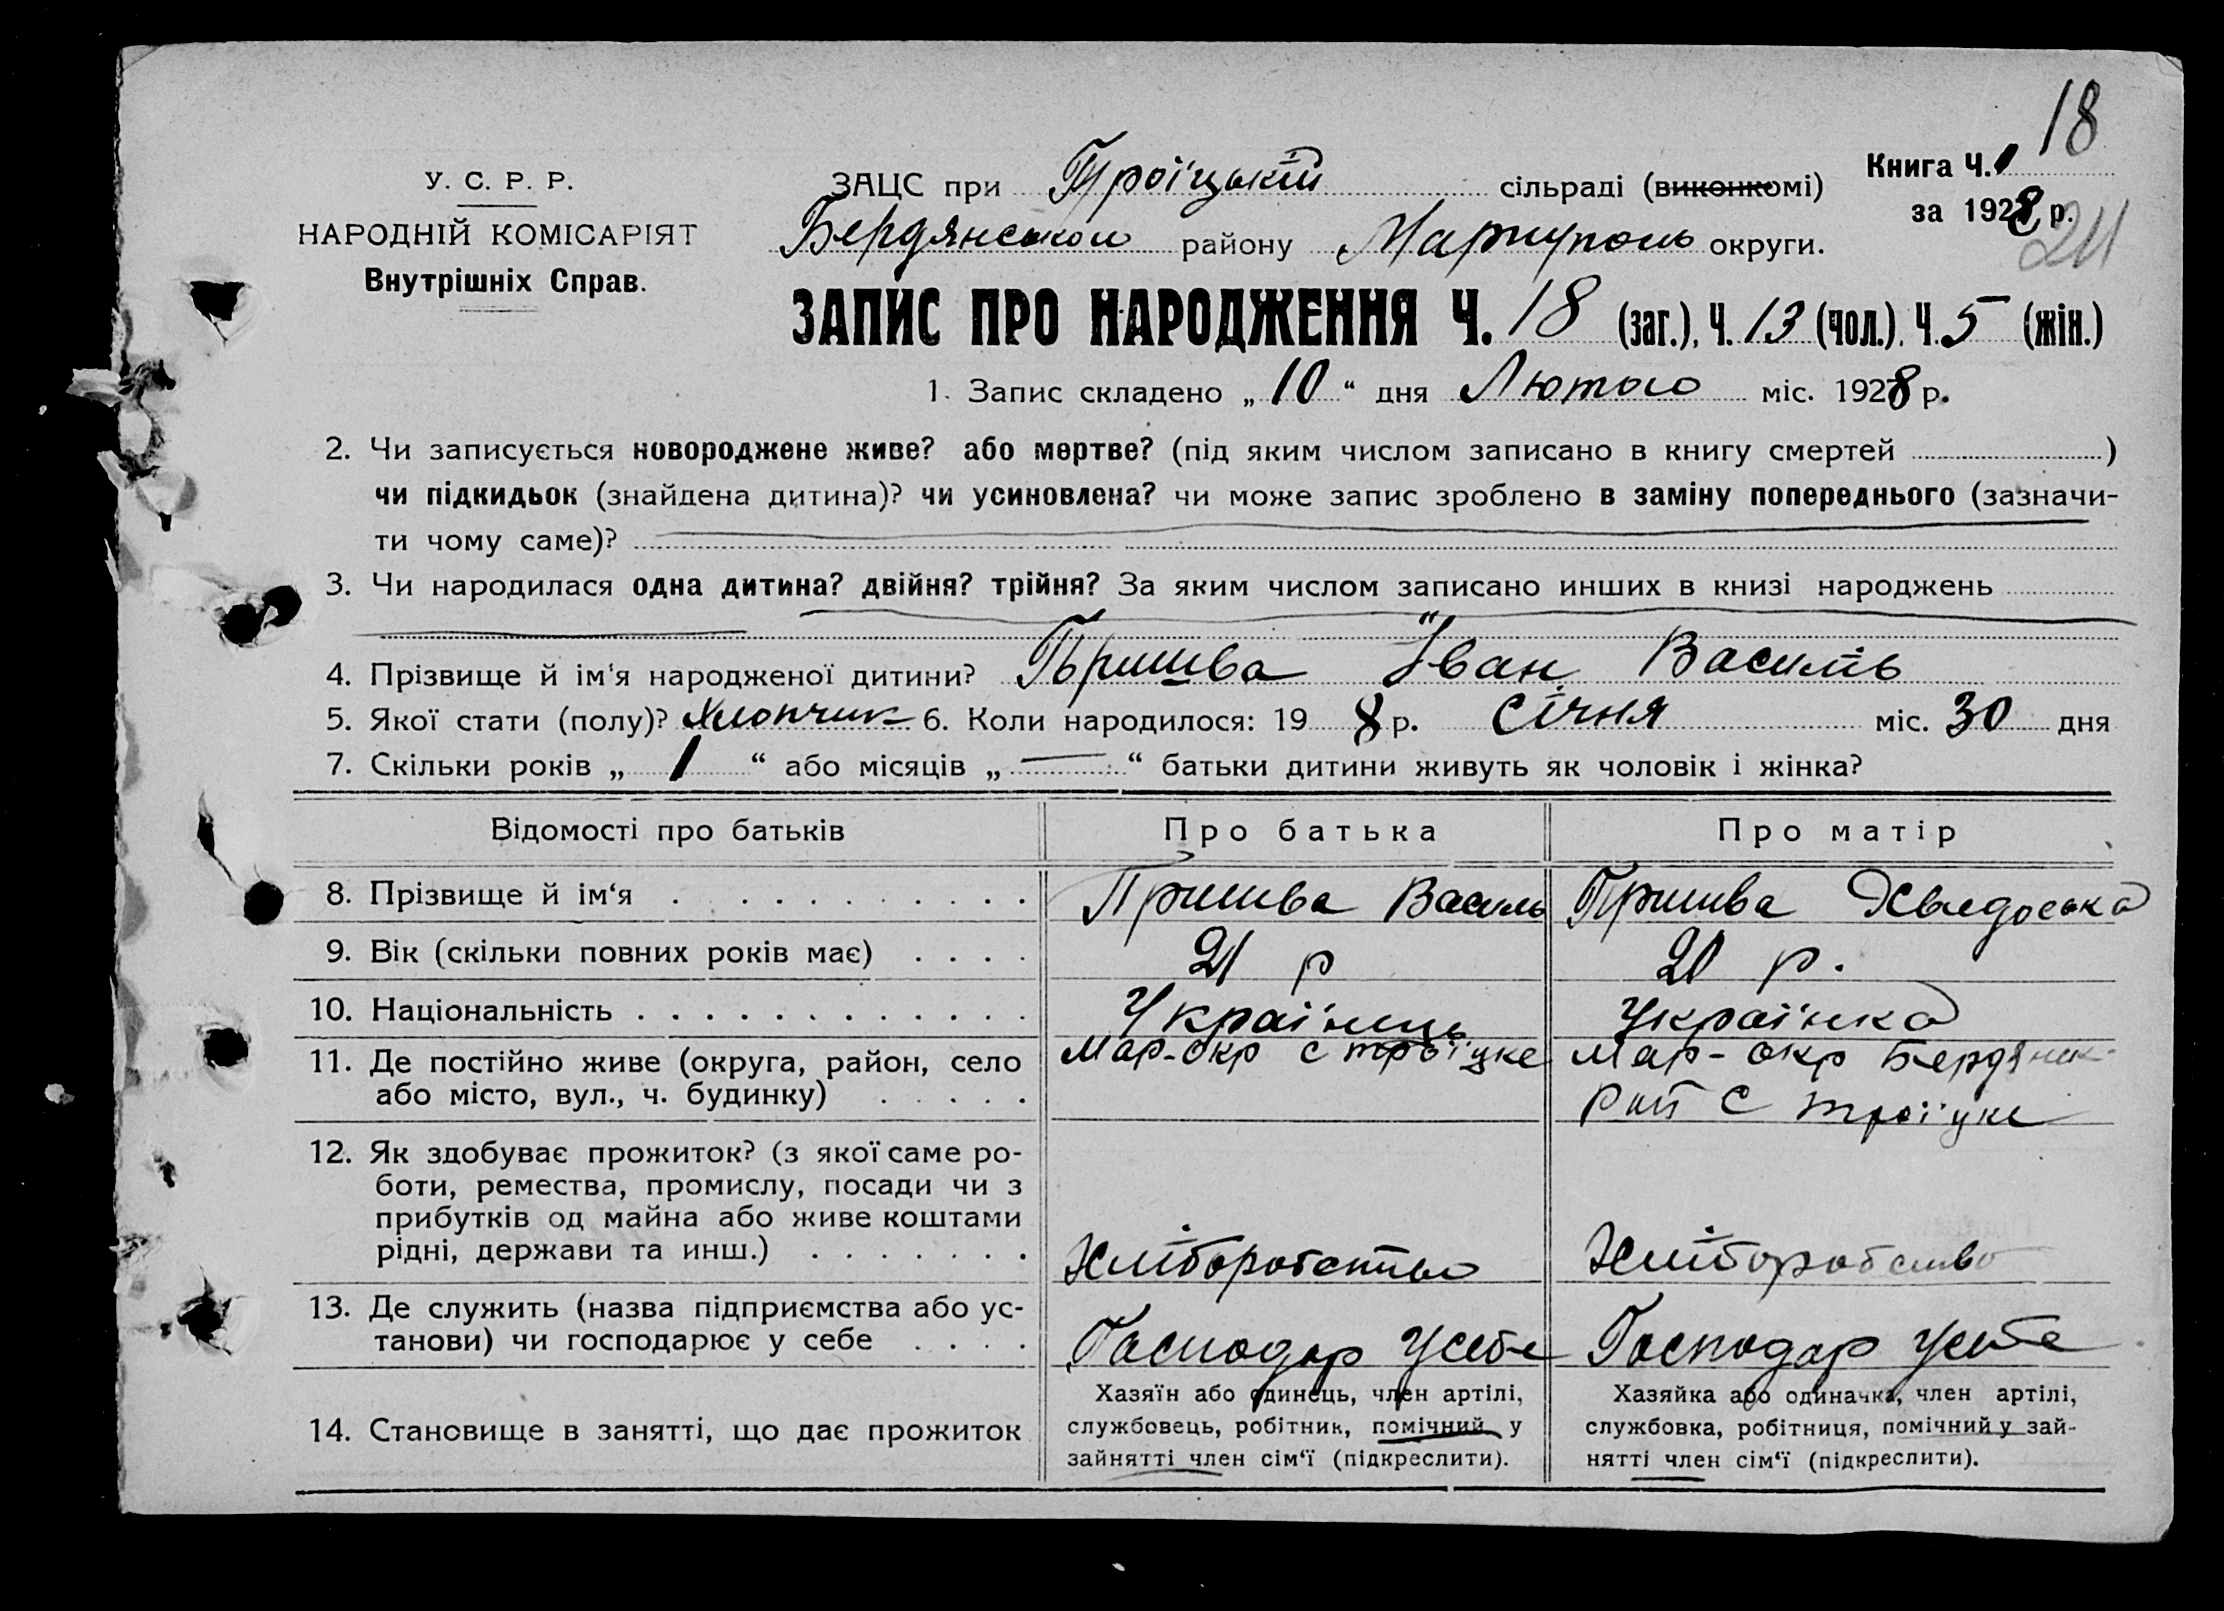 18
У. С. Р. Р.
НАРОДНІЙ КОМІСАРІЯТ
Внутрішніх Справ.
ЗАЦС при Троїцькій сільраді (виконкомі)
Книга Ч. 1
за 1928 р.
Бердянського району Маріуполь округи.
ЗАПИС ПРО НАРОДЖЕННЯ Ч. 18 (заг.), Ч. 13 (чол.), Ч. 5 (жін.)
1. Запис складено „10“ дня Лютого міс. 1928 р.
2. Чи записується новороджене живе? або мертве? (під яким числом записано в книгу смертей )
чи підкидьок (знайдена дитина)? чи усиновлена? чи може запис зроблено в заміну попереднього (зазначи-
ти чому саме)?
3. Чи народилася одна дитина? двійня? трійня? За яким числом записано инших в книзі народжень
4. Прізвище й ім'я народженої дитини? Пришва Іван Василів
5. Якої стати (полу)? Хлопчик 6. Коли народилося: 19 8 р. Січня міс. 30 дня
7. Скільки років „ 1 “ або місяців „ — “ батьки дитини живуть як чоловік і жінка?
Відомості про батьків Про батька Про матір
8. Прізвище й ім‘я Пришва Василь Пришва Хведоська
9. Вік (скільки повних років має) 21 р 20 р.
10. Національність Українець Українка
11. Де постійно живе (округа, район, село Мар-окр с троїцке Мар-окр Бердянск
або місто, вул., ч. будинку) Рай с троїцке
12. Як здобуває прожиток? (з якої саме ро-
боти, ремества, промислу, посади чи з
прибутків од майна або живе коштами
рідні, держави та инш.) Хліборобство Хліборобство
13. Де служить (назва підприємства або ус-
танови) чи господарює у себе Господар Усебе Господар Усебе
14. Становище в занятті, що дає прожиток
Хазяїн або одинець, член артілі,
службовець, робітник, помічний у
зайнятті член сім‘ї (підкреслити).
Хазяйка або одиначка, член артілі,
службовка, робітниця, помічний у зай-
нятті член сім‘ї (підкреслити).